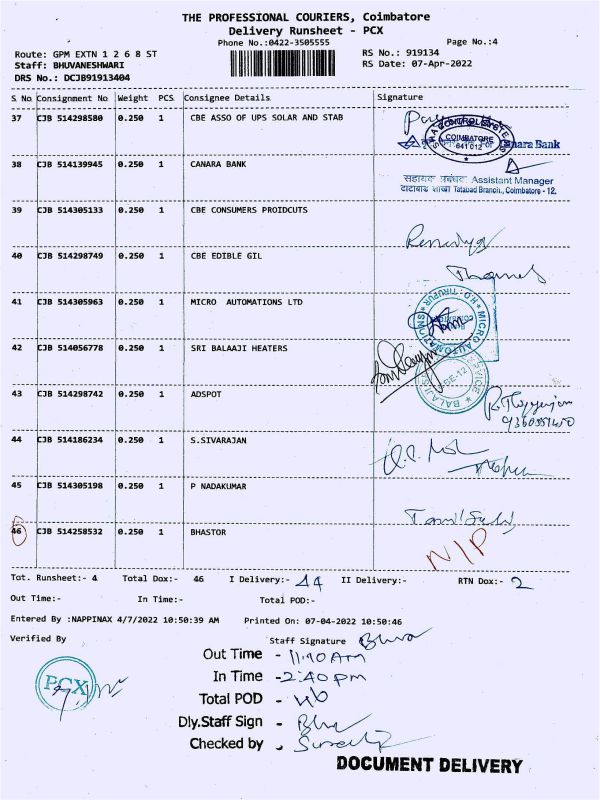 THE PROFESSIONAL COURIERS, Coimbatore
Delivery Runsheet - PCX
Phone No.:0422-3505555
Page No.:4
Route: GPM EXTN 1 2 6 8 ST
RS No.: 919134
Staff: BHUVANESHWARI
RS Date: 07-Apr-2022
DRS No.: DCJB91913404
S No Consignment No Weight PCS Consignee Details Signature
37 CJB 514298580 0.250 1 CBE ASSO OF UPS SOLAR AND STAB
CONTROL SYSTEMS
COIMBATORE
641 012
Canara Bank
38 CJB 514139945 0.250 1 CANARA BANK
सहायक प्रबंधक Assistant Manager
टाटाबाद शाखा Tatabad Branch, Coimbatore - 12.
39 CJB 514305133 0.250 1 CBE CONSUMERS PROIDCUTS
40 CJB 514298749 0.250 1 CBE EDIBLE GIL
41 CJB 514305963 0.250 1 MICRO AUTOMATIONS LTD
MICRO AUTOMATIONS H.O. TIRUPUR
42 CJB 514056778 0.250 1 SRI BALAAJI HEATERS
43 CJB 514298742 0.250 1 ADSPOT
44 CJB 514186234 0.250 1 S.SIVARAJAN
45 CJB 514305198 0.250 1 P NADAKUMAR
46 CJB 514258532 0.250 1 BHASTOR
N/P
Tot. Runsheet:- 4 Total Dox:- 46 I Delivery:- 44 II Delivery:- RTN Dox:- 2
Out Time:- In Time:- Total POD:-
Entered By :NAPPINAX 4/7/2022 10:50:39 AM Printed On: 07-04-2022 10:50:46
Verified By
Staff Signature Bhuva
PCX
Out Time - 11.10 AM
In Time - 2:40 pm
Total POD - 46
Dly.Staff Sign - Bhu
Checked by -
DOCUMENT DELIVERY